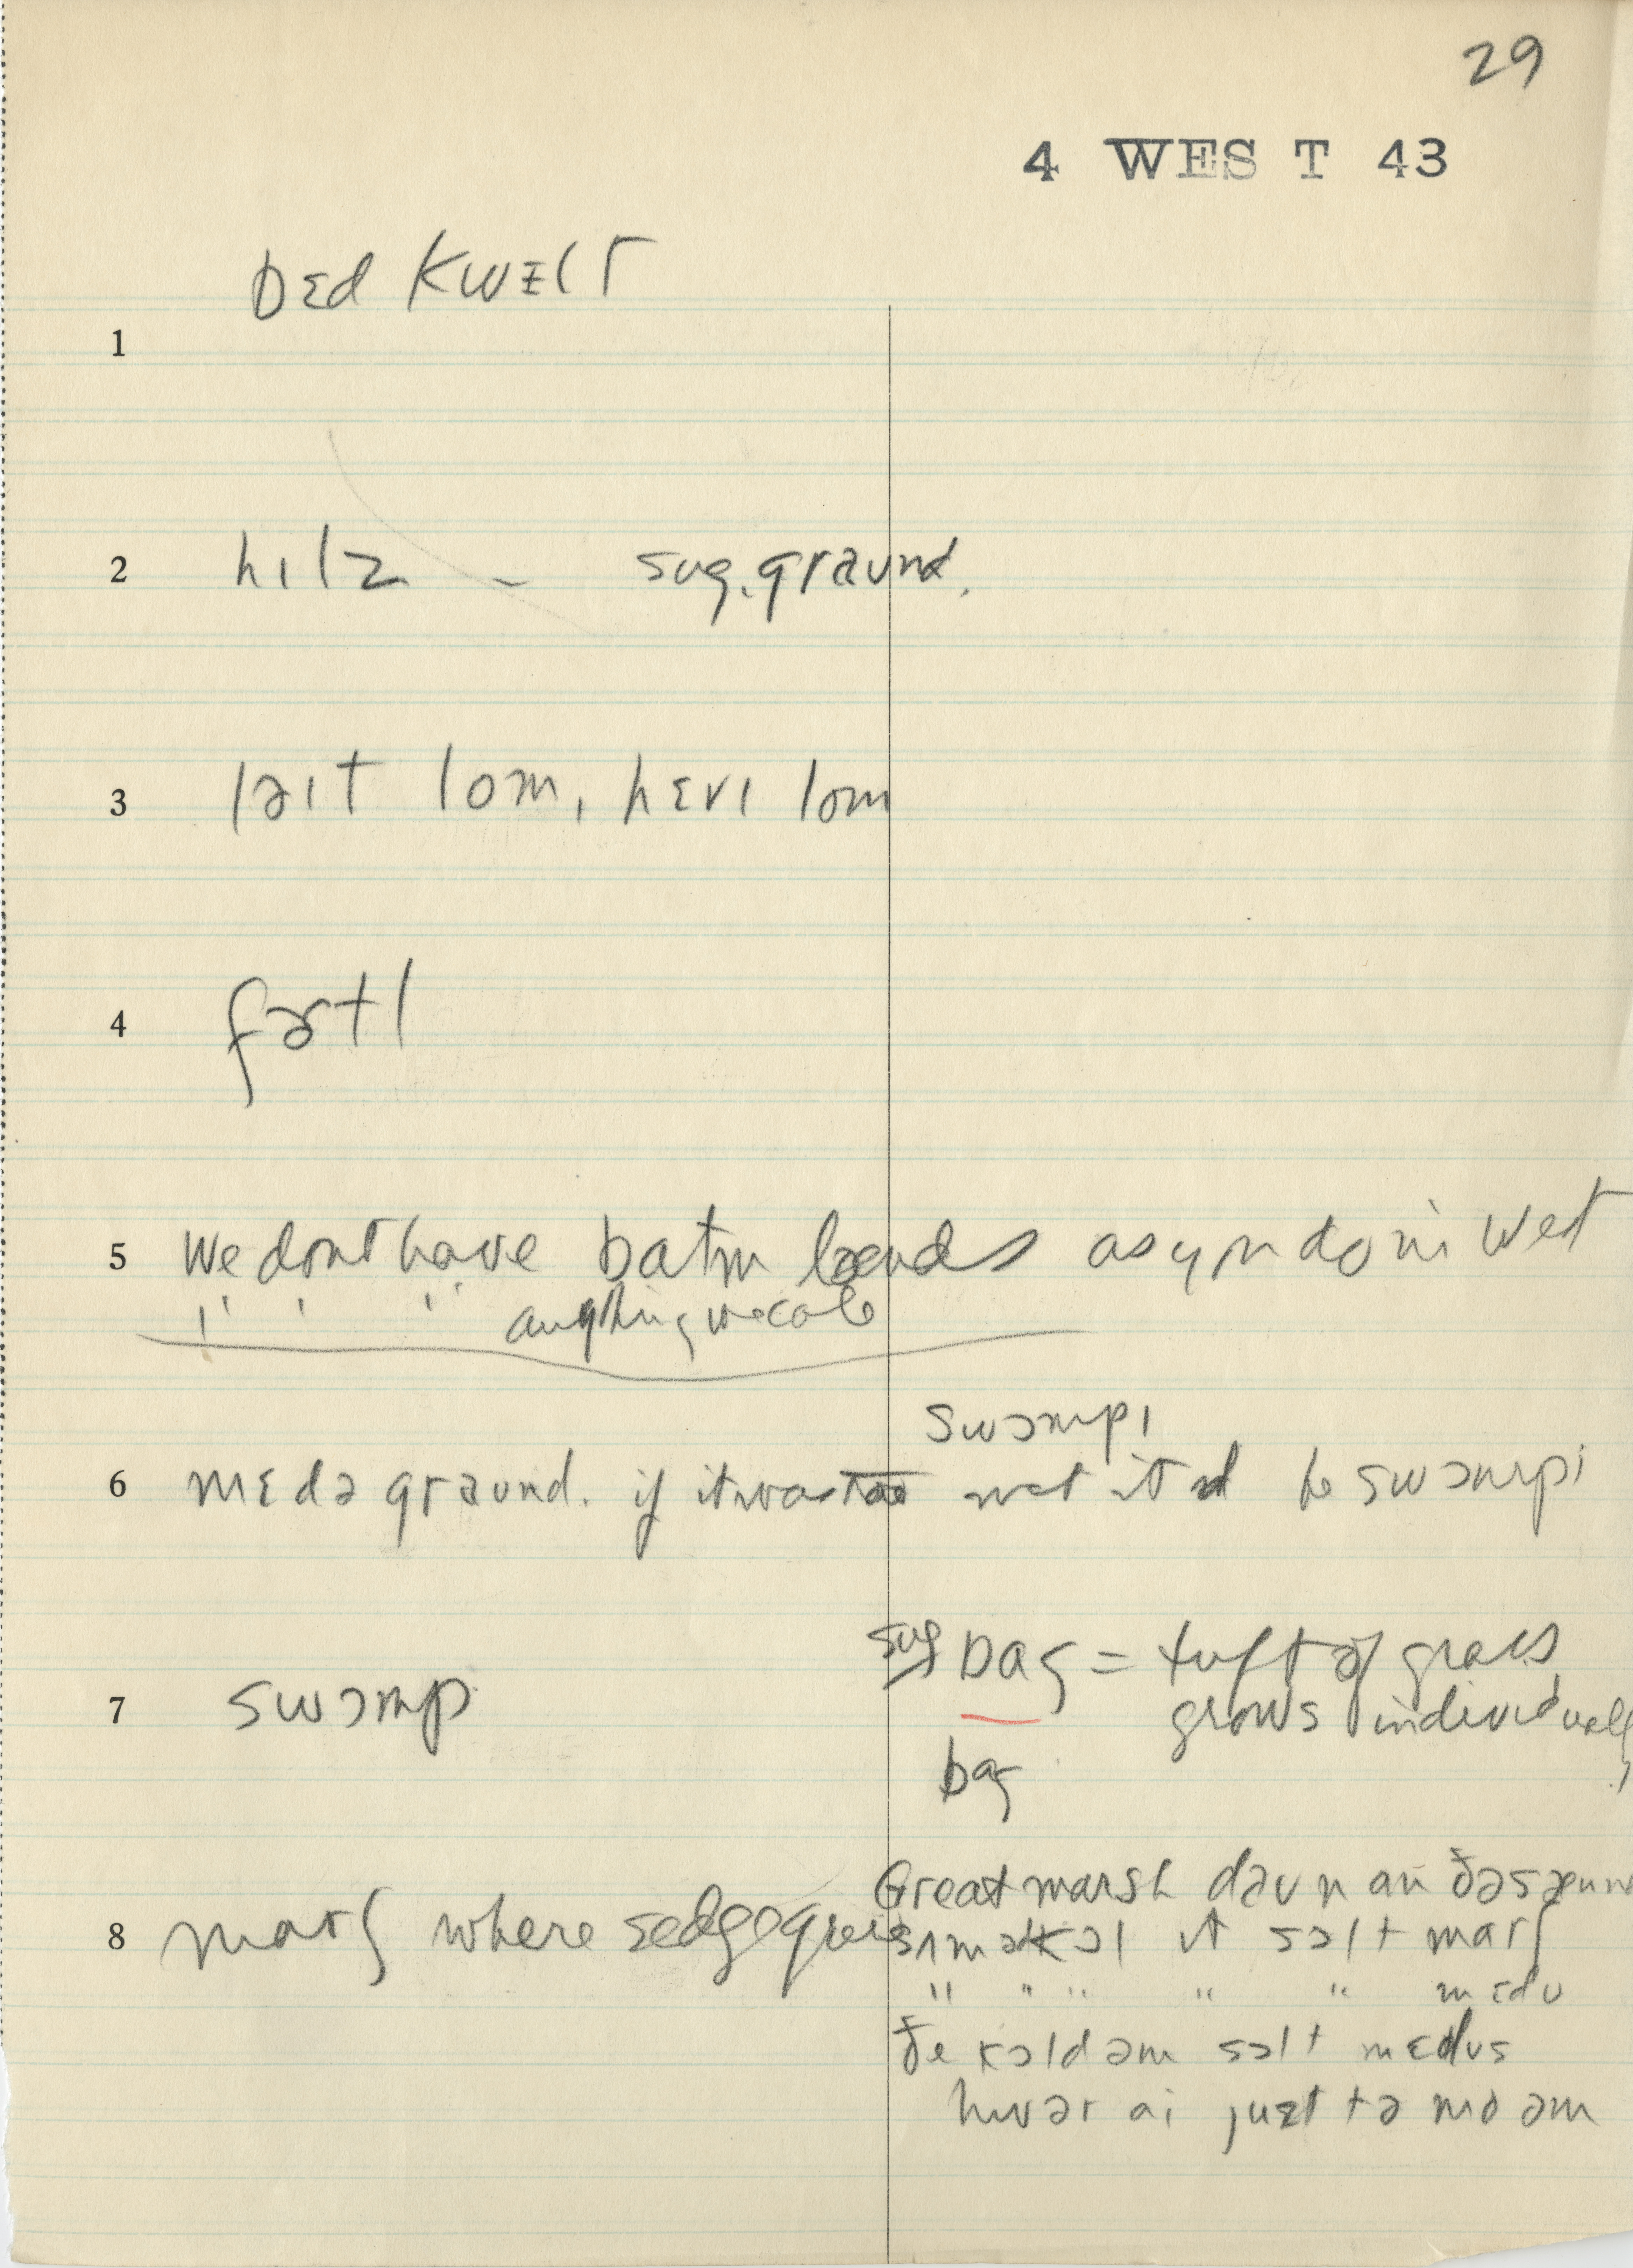 29
4 WEST 43
bɛd kwɛlt
1
2 hɪlz – sug. graund.
3 ləɪt lom, hɛvɪ lom
4 fərtl
5 We dont have batm lænds as yu do in West
" " " anything we call
swɔmpɪ
6 mɛdə graund. if it was too wet itd be swɔmpi
7 swɔmp sug bɑg = tuft of grass
grows individually
bɑg
8 marʃ where sedge grows
Great marsh dəun an ðə saund
sʌm əv kɔl it sɔlt marʃ
" " " " " mɛdu
ðe kɔld əm sɔlt mɛdus
hwər ai juzt tə mo əm